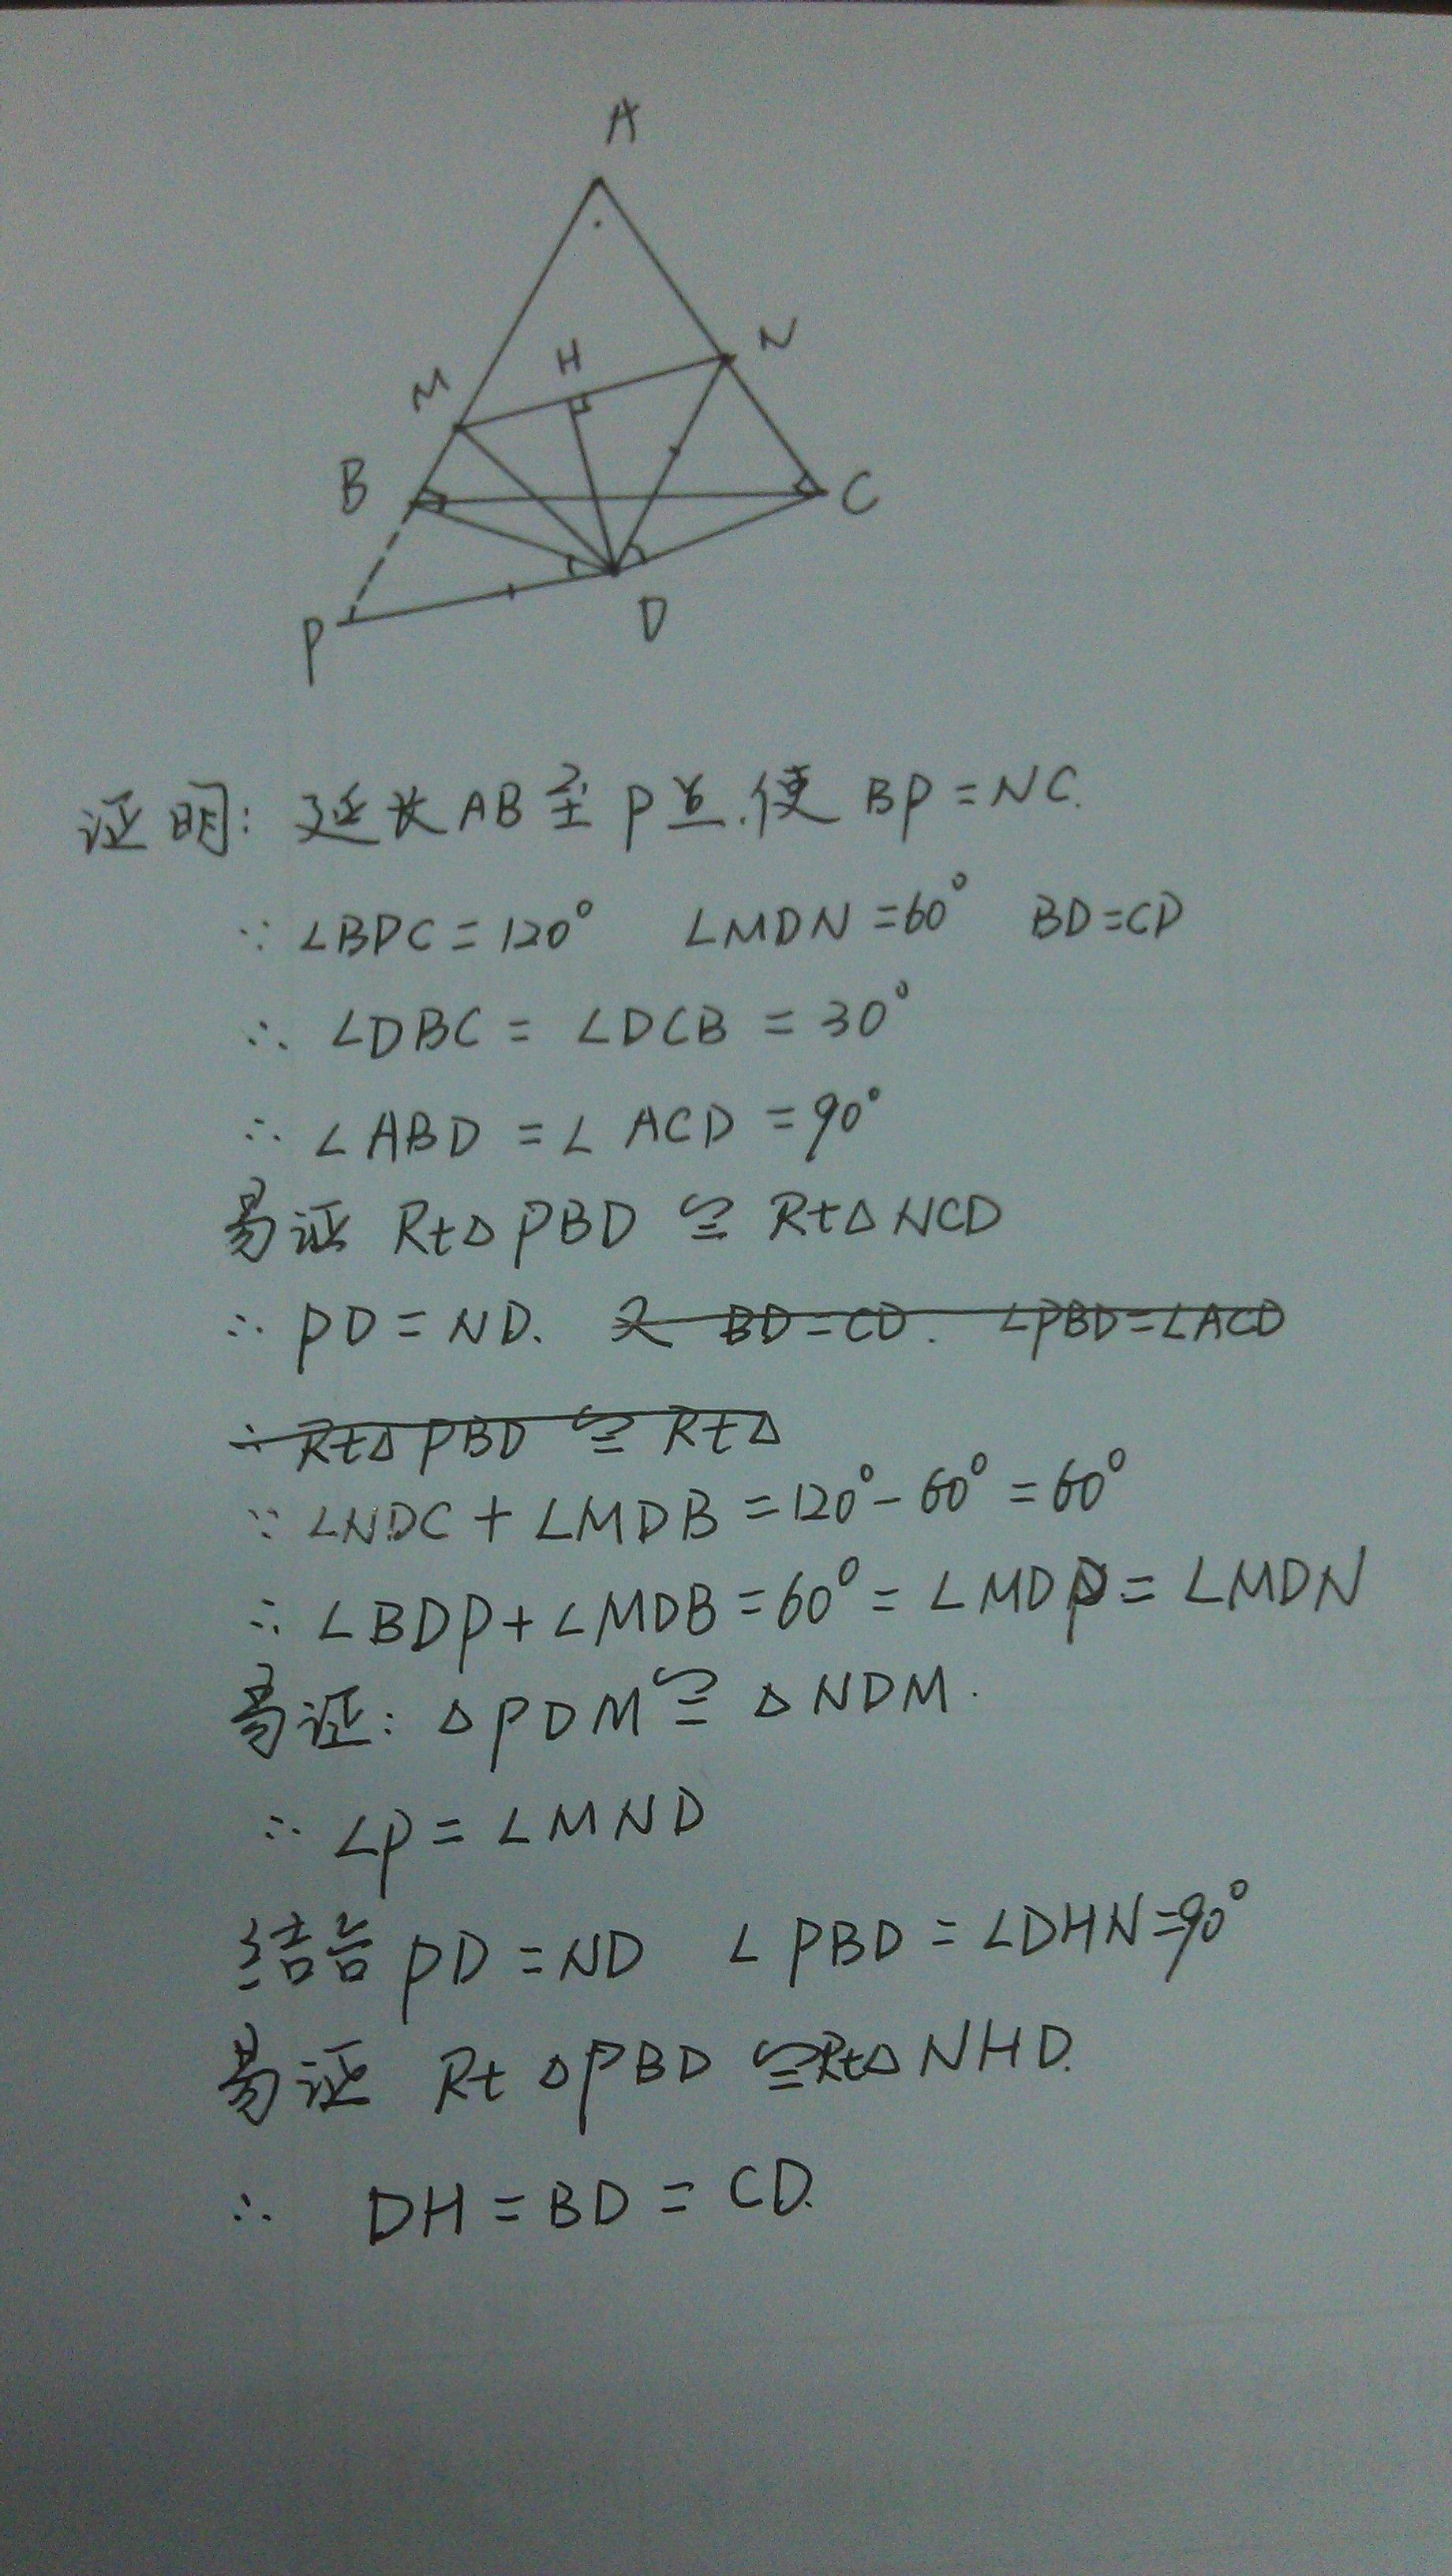 A
N
H
M
B
C
D
P
证明: 延长AB至P点.使 BP=NC.
∵ ∠BDC=120° ∠MDN=60° BD=CD
∴ ∠DBC = ∠DCB = 30°
∴ ∠ABD = ∠ACD = 90°
易证 Rt△PBD ≌ Rt△NCD
∴ PD=ND. 又 BD=CD. ∠PBD=∠ACD
∴ Rt△PBD ≌ Rt△
∵ ∠NDC + ∠MDB = 120°-60° = 60°
∴ ∠BDP+∠MDB=60°=∠MDP=∠MDN
易证: △PDM ≌ △NDM.
∴ ∠P = ∠MND
结合 PD=ND ∠PBD=∠DHN=90°
易证 Rt△PBD ≌ Rt△NHD.
∴ DH = BD = CD.